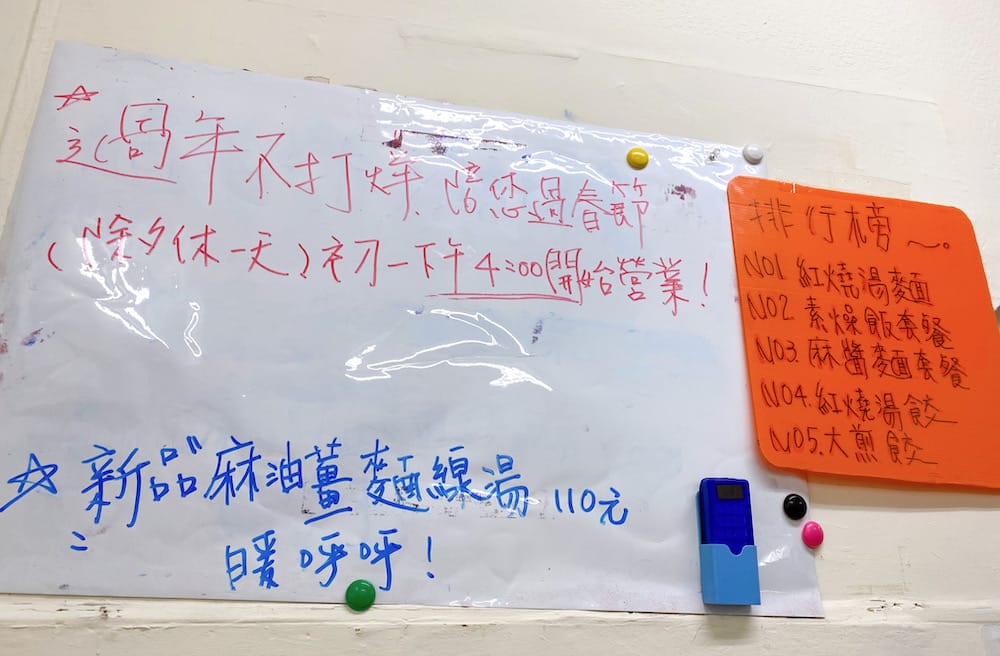 ☆過年不打烊,陪您過春節
(除夕休一天)初一下午4:00開始營業!
☆新品"麻油薑麵線湯 110元
暖呼呼!
排行榜~。
NO1.紅燒湯麵
NO2.素燥飯套餐
NO3.麻醬麵套餐
NO4.紅燒湯餃
NO5.大煎餃